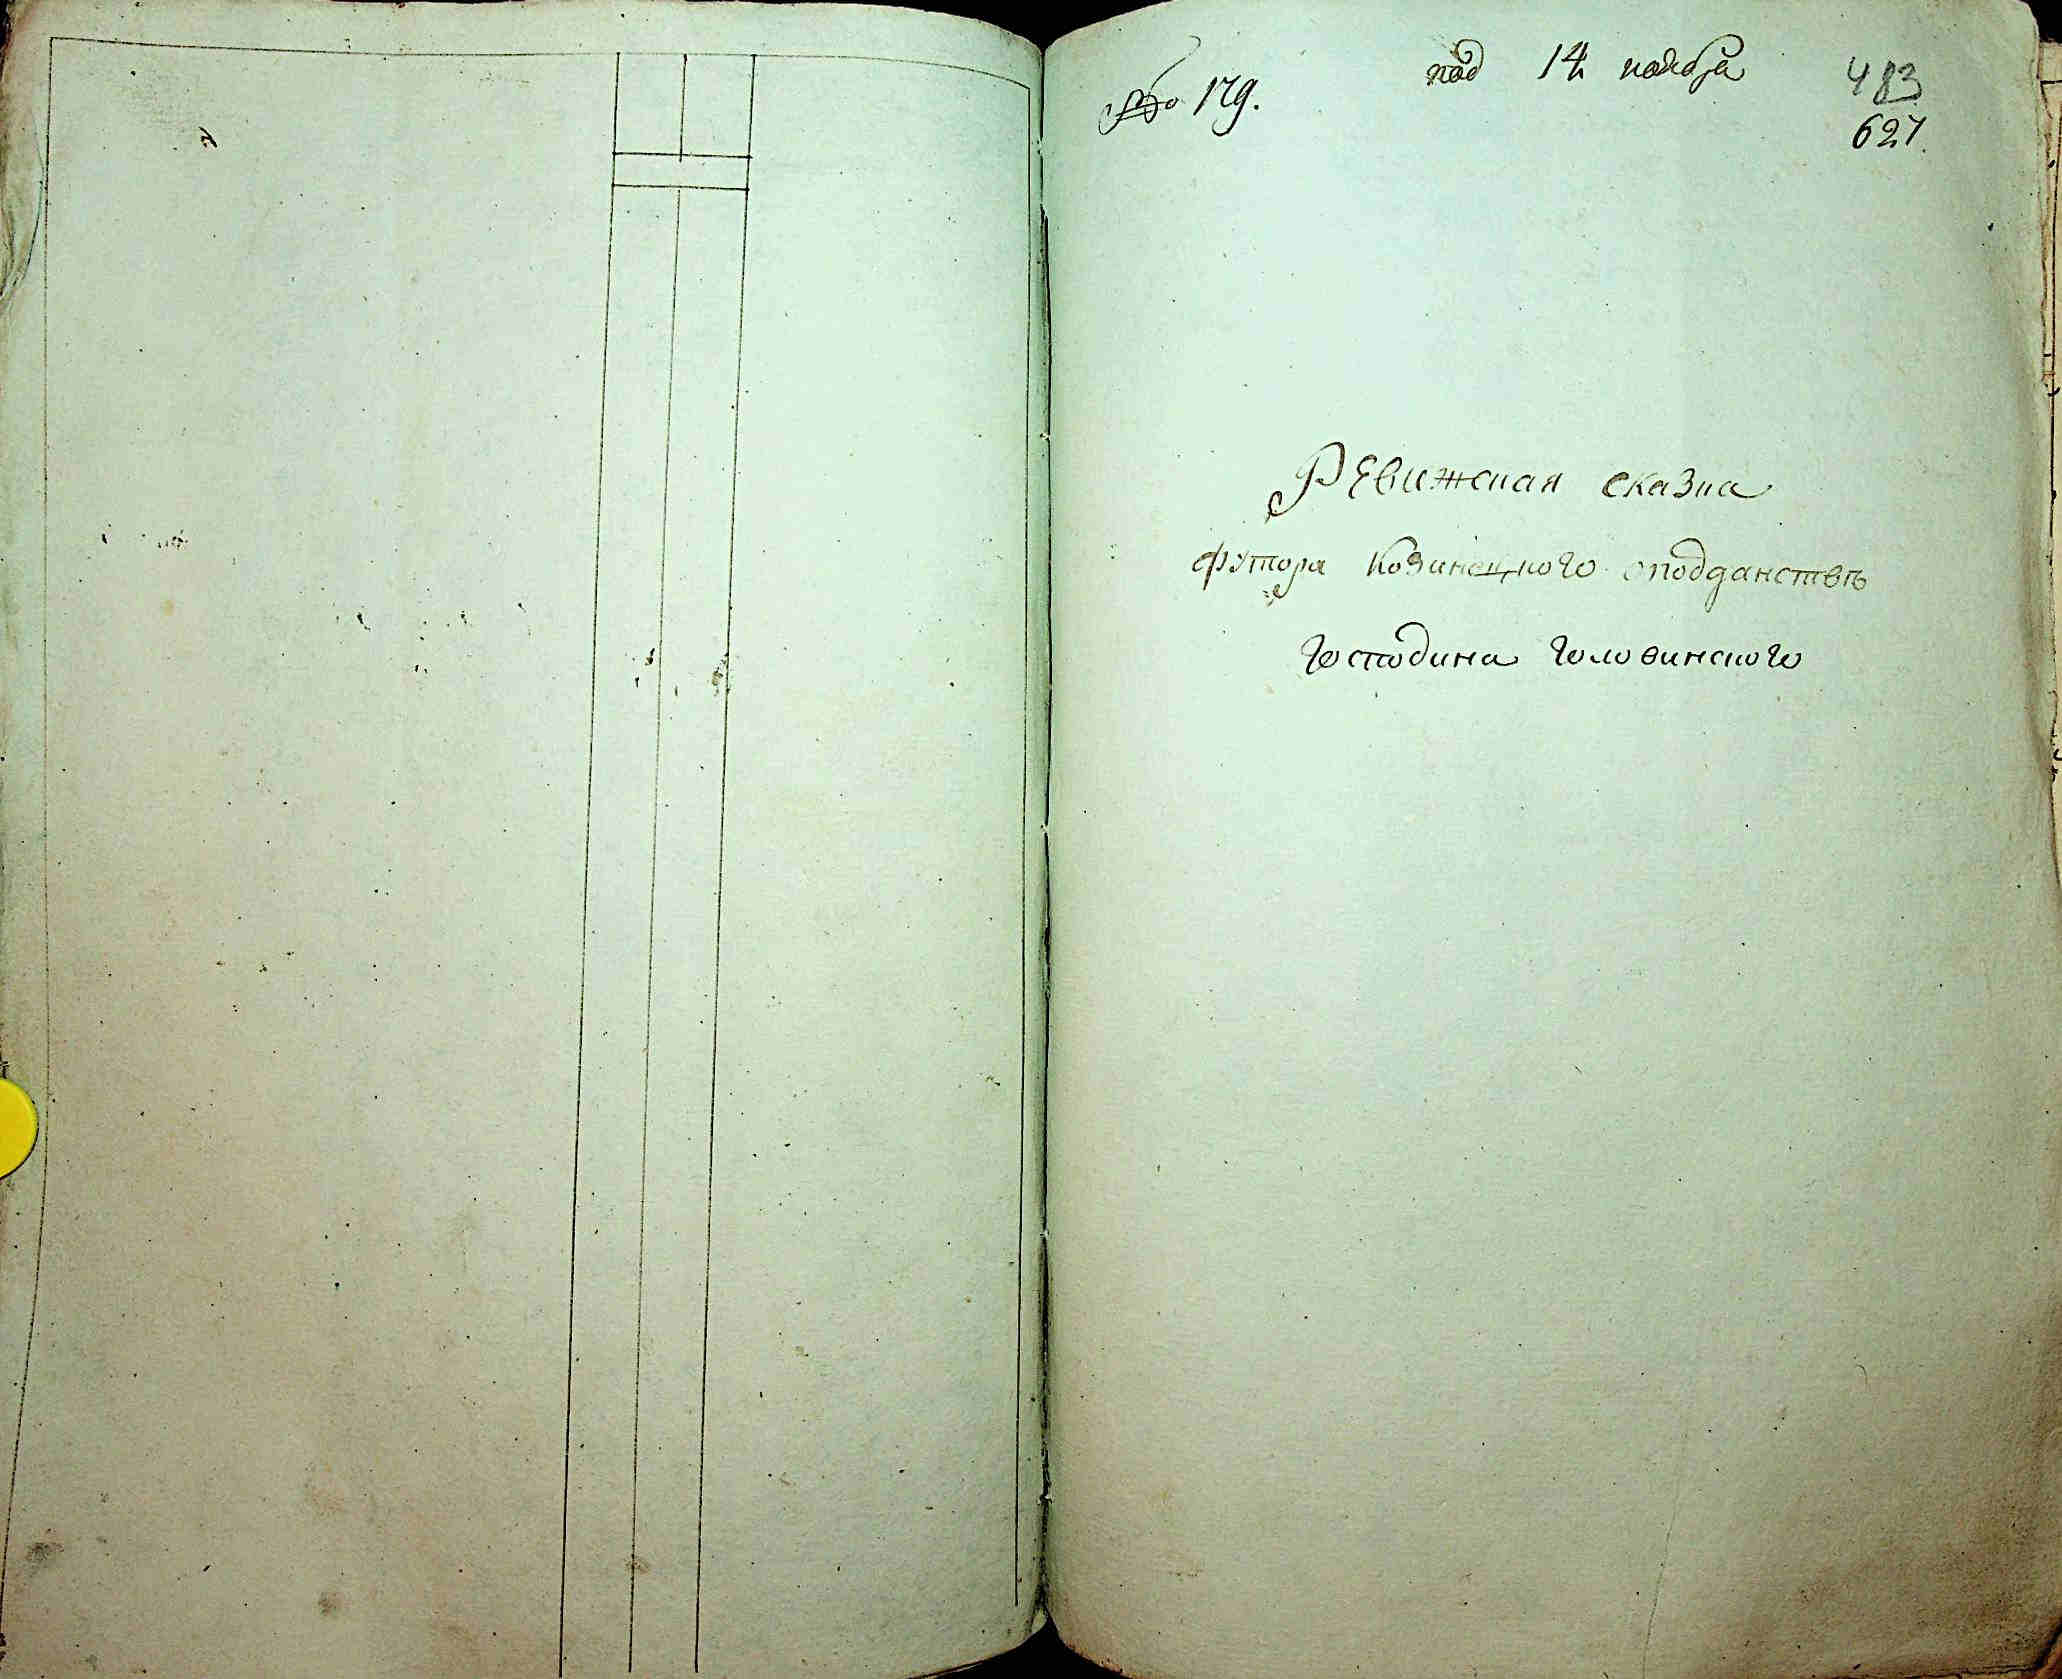 № 179.
под 14 ноября
483
627.
Ревижская сказка
футора Козинецкого оподданствѣ
Господина Головинского